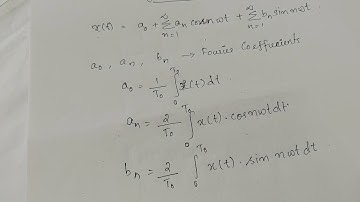 x(t) = a₀ + ∞∑n=1 aₙ cosnωt + ∞∑n=1 bₙ sinnωt
a₀ , aₙ , bₙ → Fourier Coefficients
a₀ = 1/T₀ ∫₀^T₀ x(t) dt
aₙ = 2/T₀ ∫₀^T₀ x(t) · cosnωt dt
bₙ = 2/T₀ ∫₀^T₀ x(t) · sin nωt dt